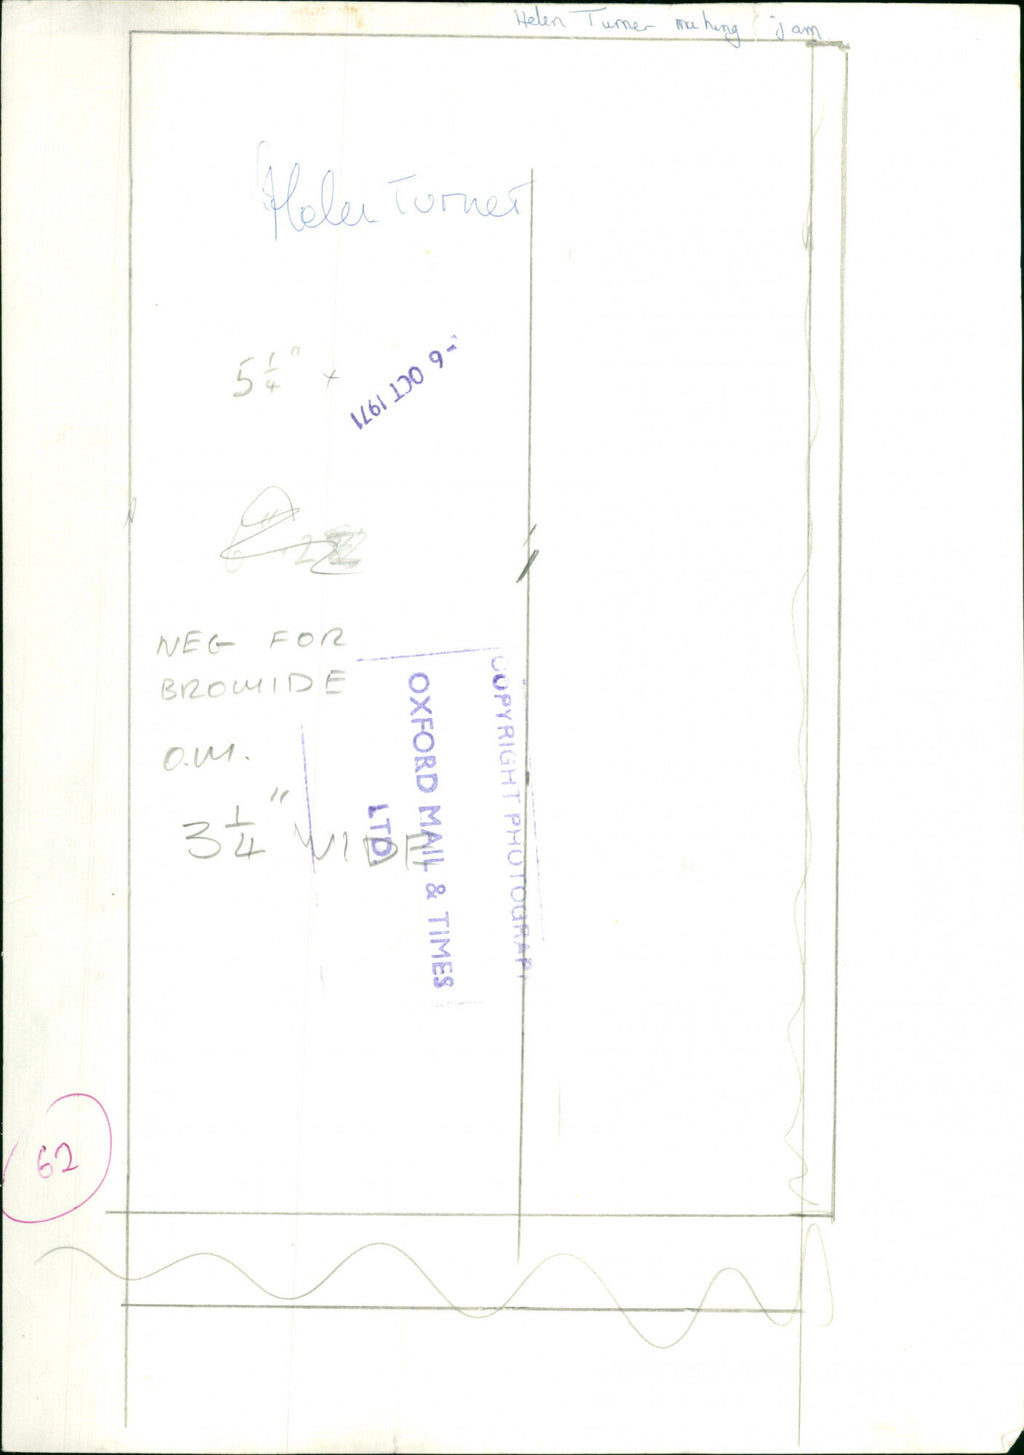 Helen Turner making jam
Helen Turner
5 1/4" x
-6 OCT 1971
NEG FOR
BROMIDE
O.M.
3 1/4" WIDE
COPYRIGHT PHOTOGRAPH
OXFORD MAIL & TIMES
LTD
62